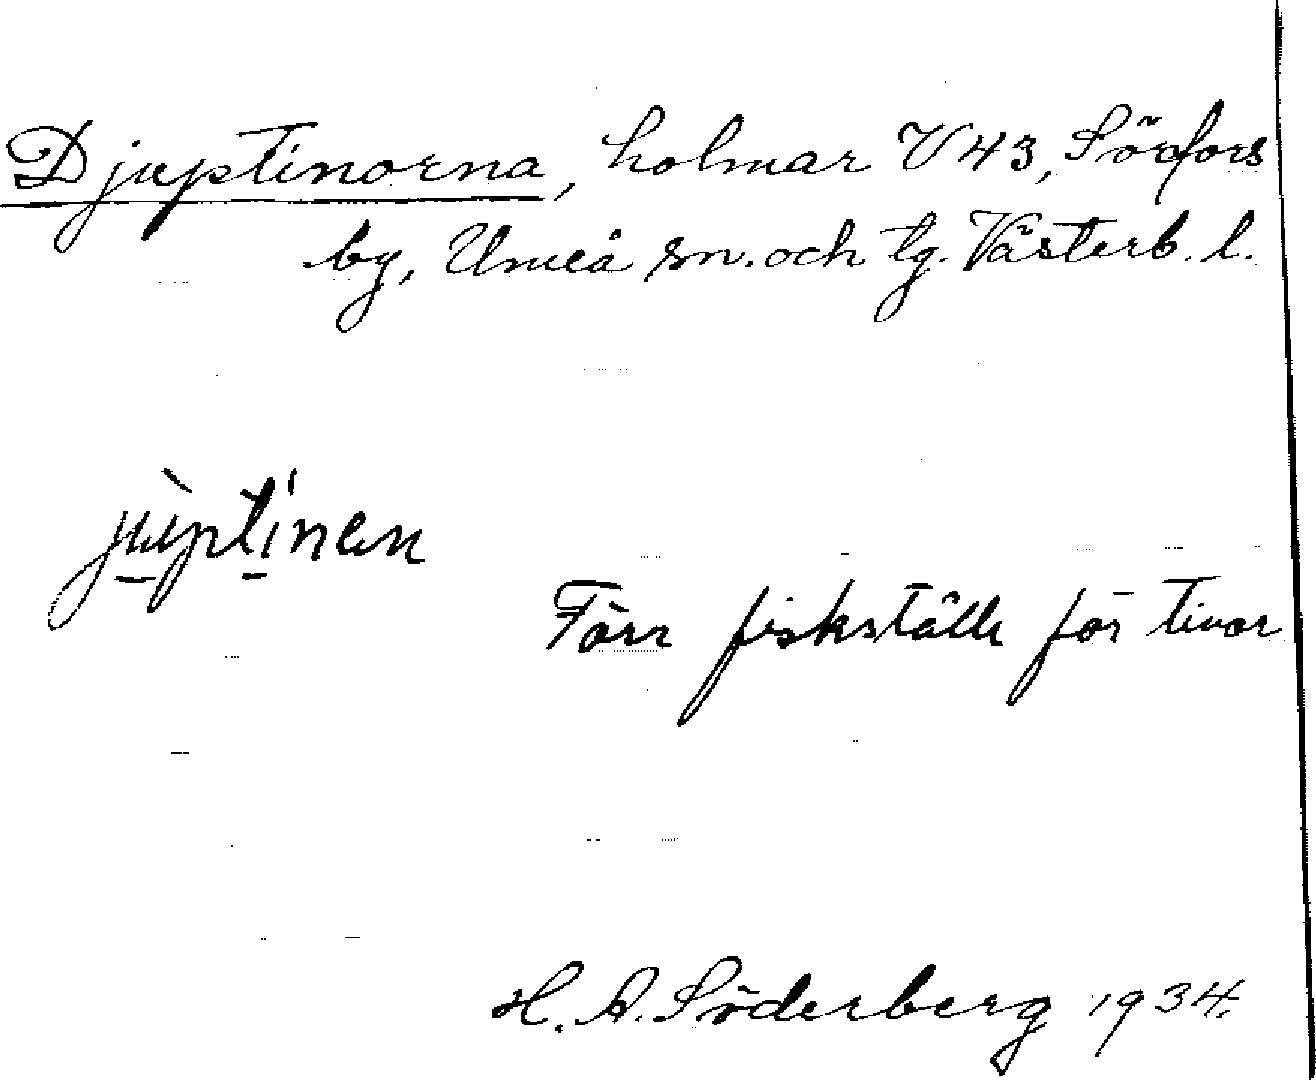 Djuptinorna, holmar V43, Sörfors
by, Umeå sn. och tg. Västerb. l.
jùptínan
Förr fiskställe för tinor
H. A. Söderberg 1934.